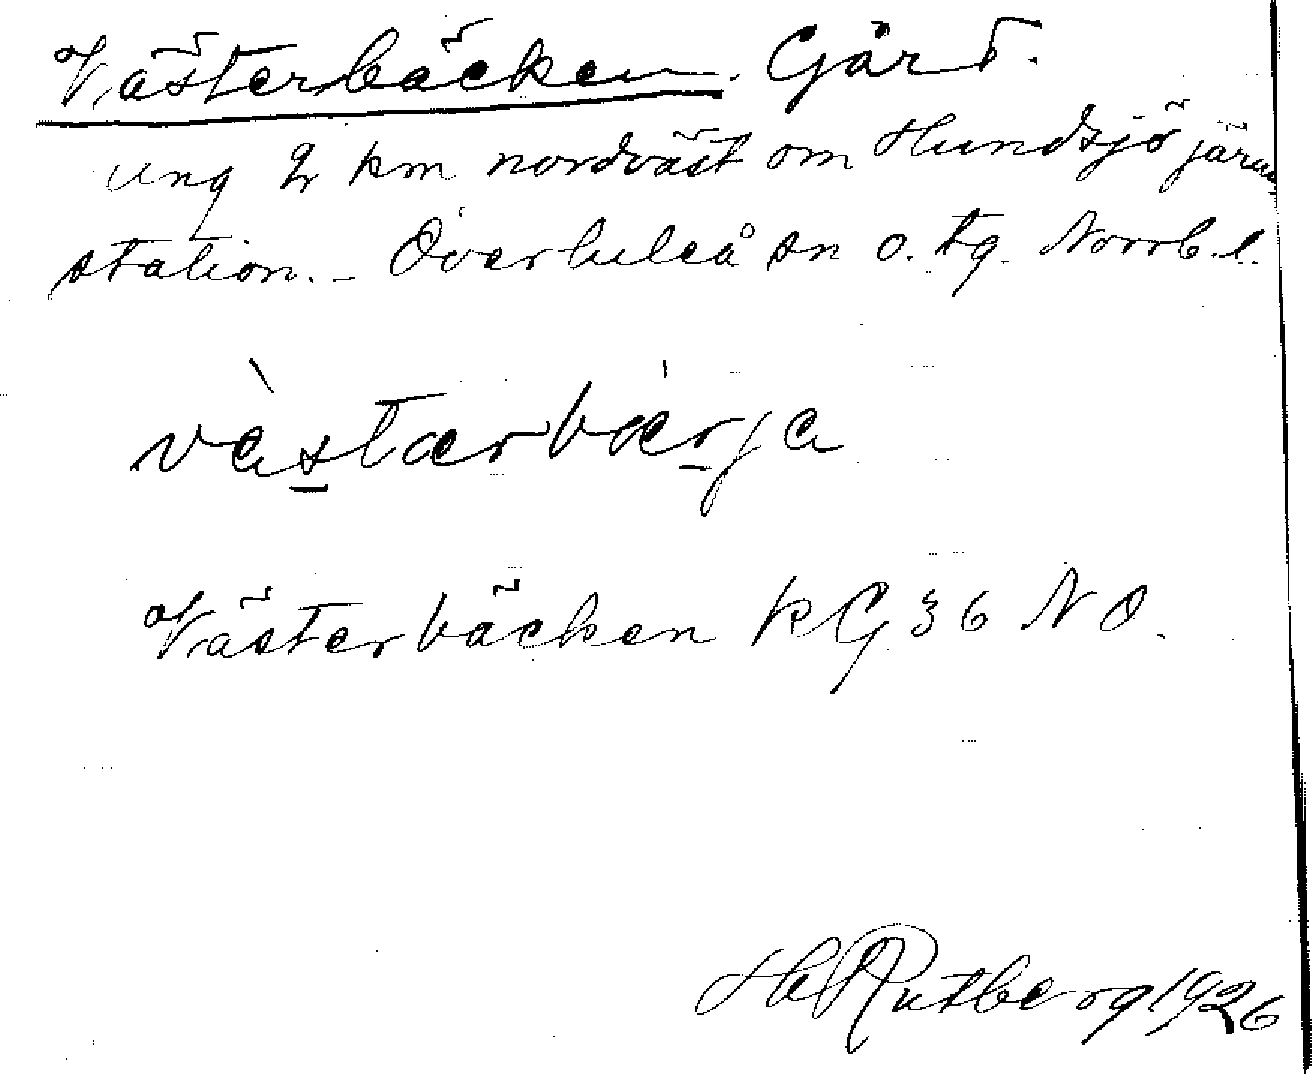 Västerbäcken. Gård.
ung 2 km nordväst om Hundsjö järn
station. – Överluleå sn o. tg. Norrb. l.
Västerbäcken KG 36 NO.
H Rutberg 1926